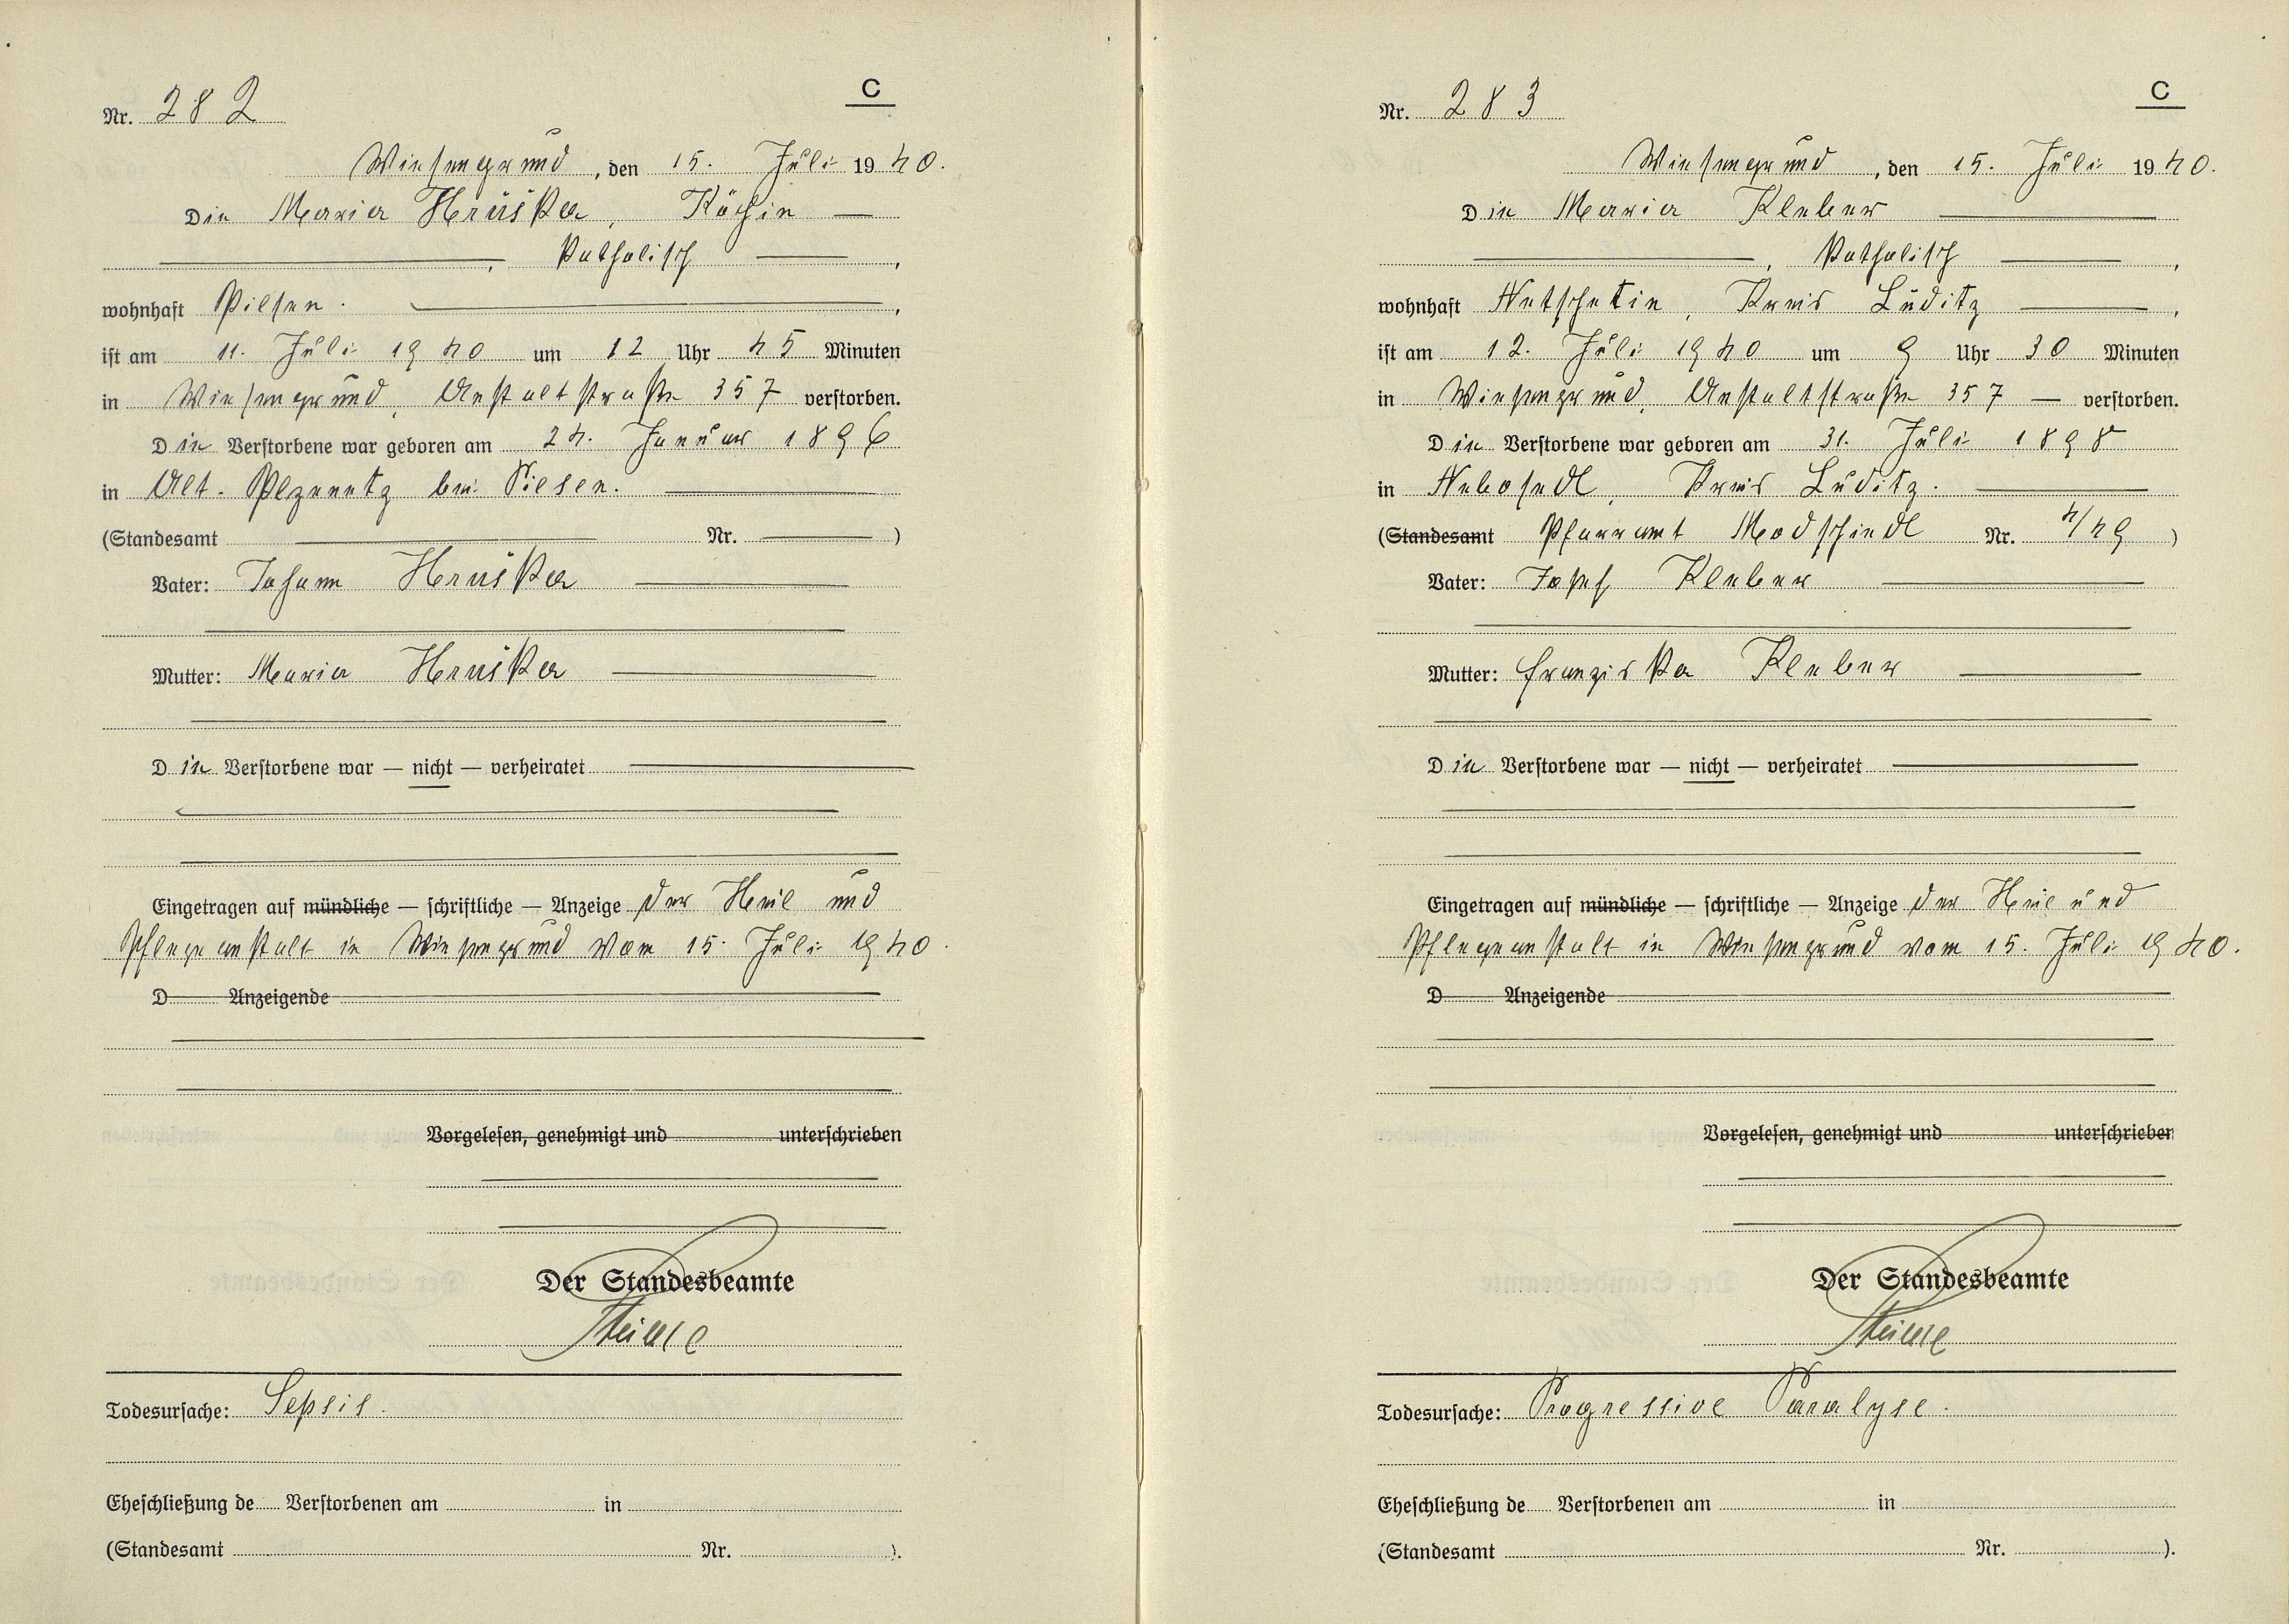 C
Nr. 282
Wiesengrund, den 15. Juli 1940.
Die Maria Hruška, Köchin
, katholisch ,
wohnhaft Pilsen. ,
ist am 11. Juli 1940 um 12 Uhr 45 Minuten
in Wiesengrund, Anstaltstraße 357 verstorben.
Die Verstorbene war geboren am 24. Jannuar 1896
in Alt. Plzenetz bei Pilsen.
(Standesamt Nr. )
Vater: Johann Hruška
Mutter: Maria Hruška
Die Verstorbene war — nicht — verheiratet
Eingetragen auf mündliche — schriftliche — Anzeige der Heil und
Pflegeanstalt in Wiesengrund vom 15. Juli 1940.
D Anzeigende
Vorgelesen, genehmigt und unterschrieben
Der Standesbeamte
Todesursache: Sepsis.
Eheschließung de Verstorbenen am in
(Standesamt Nr. ).
C
Nr. 283
Wiesengrund, den 15. Juli 1940.
Die Maria Kleber
, katholisch ,
wohnhaft Netschetin, Kreis Luditz ,
ist am 12. Juli 1940 um 9 Uhr 30 Minuten
in Wiesengrund, Anstaltstraße 357 — verstorben.
Die Verstorbene war geboren am 31. Juli 1898
in Nebosedl, Kreis Luditz.
(Standesamt Pfarramt Modschiedl Nr. 4/49 )
Vater: Josef Kleber
Mutter: Franziska Kleber
Die Verstorbene war — nicht — verheiratet
Eingetragen auf mündliche — schriftliche — Anzeige der Heil und
Pflegeanstalt in Wiesengrund vom 15. Juli 1940.
D Anzeigende
Vorgelesen, genehmigt und unterschrieben
Der Standesbeamte
Todesursache: Progressive Paralyse.
Eheschließung de Verstorbenen am in
(Standesamt Nr. ).